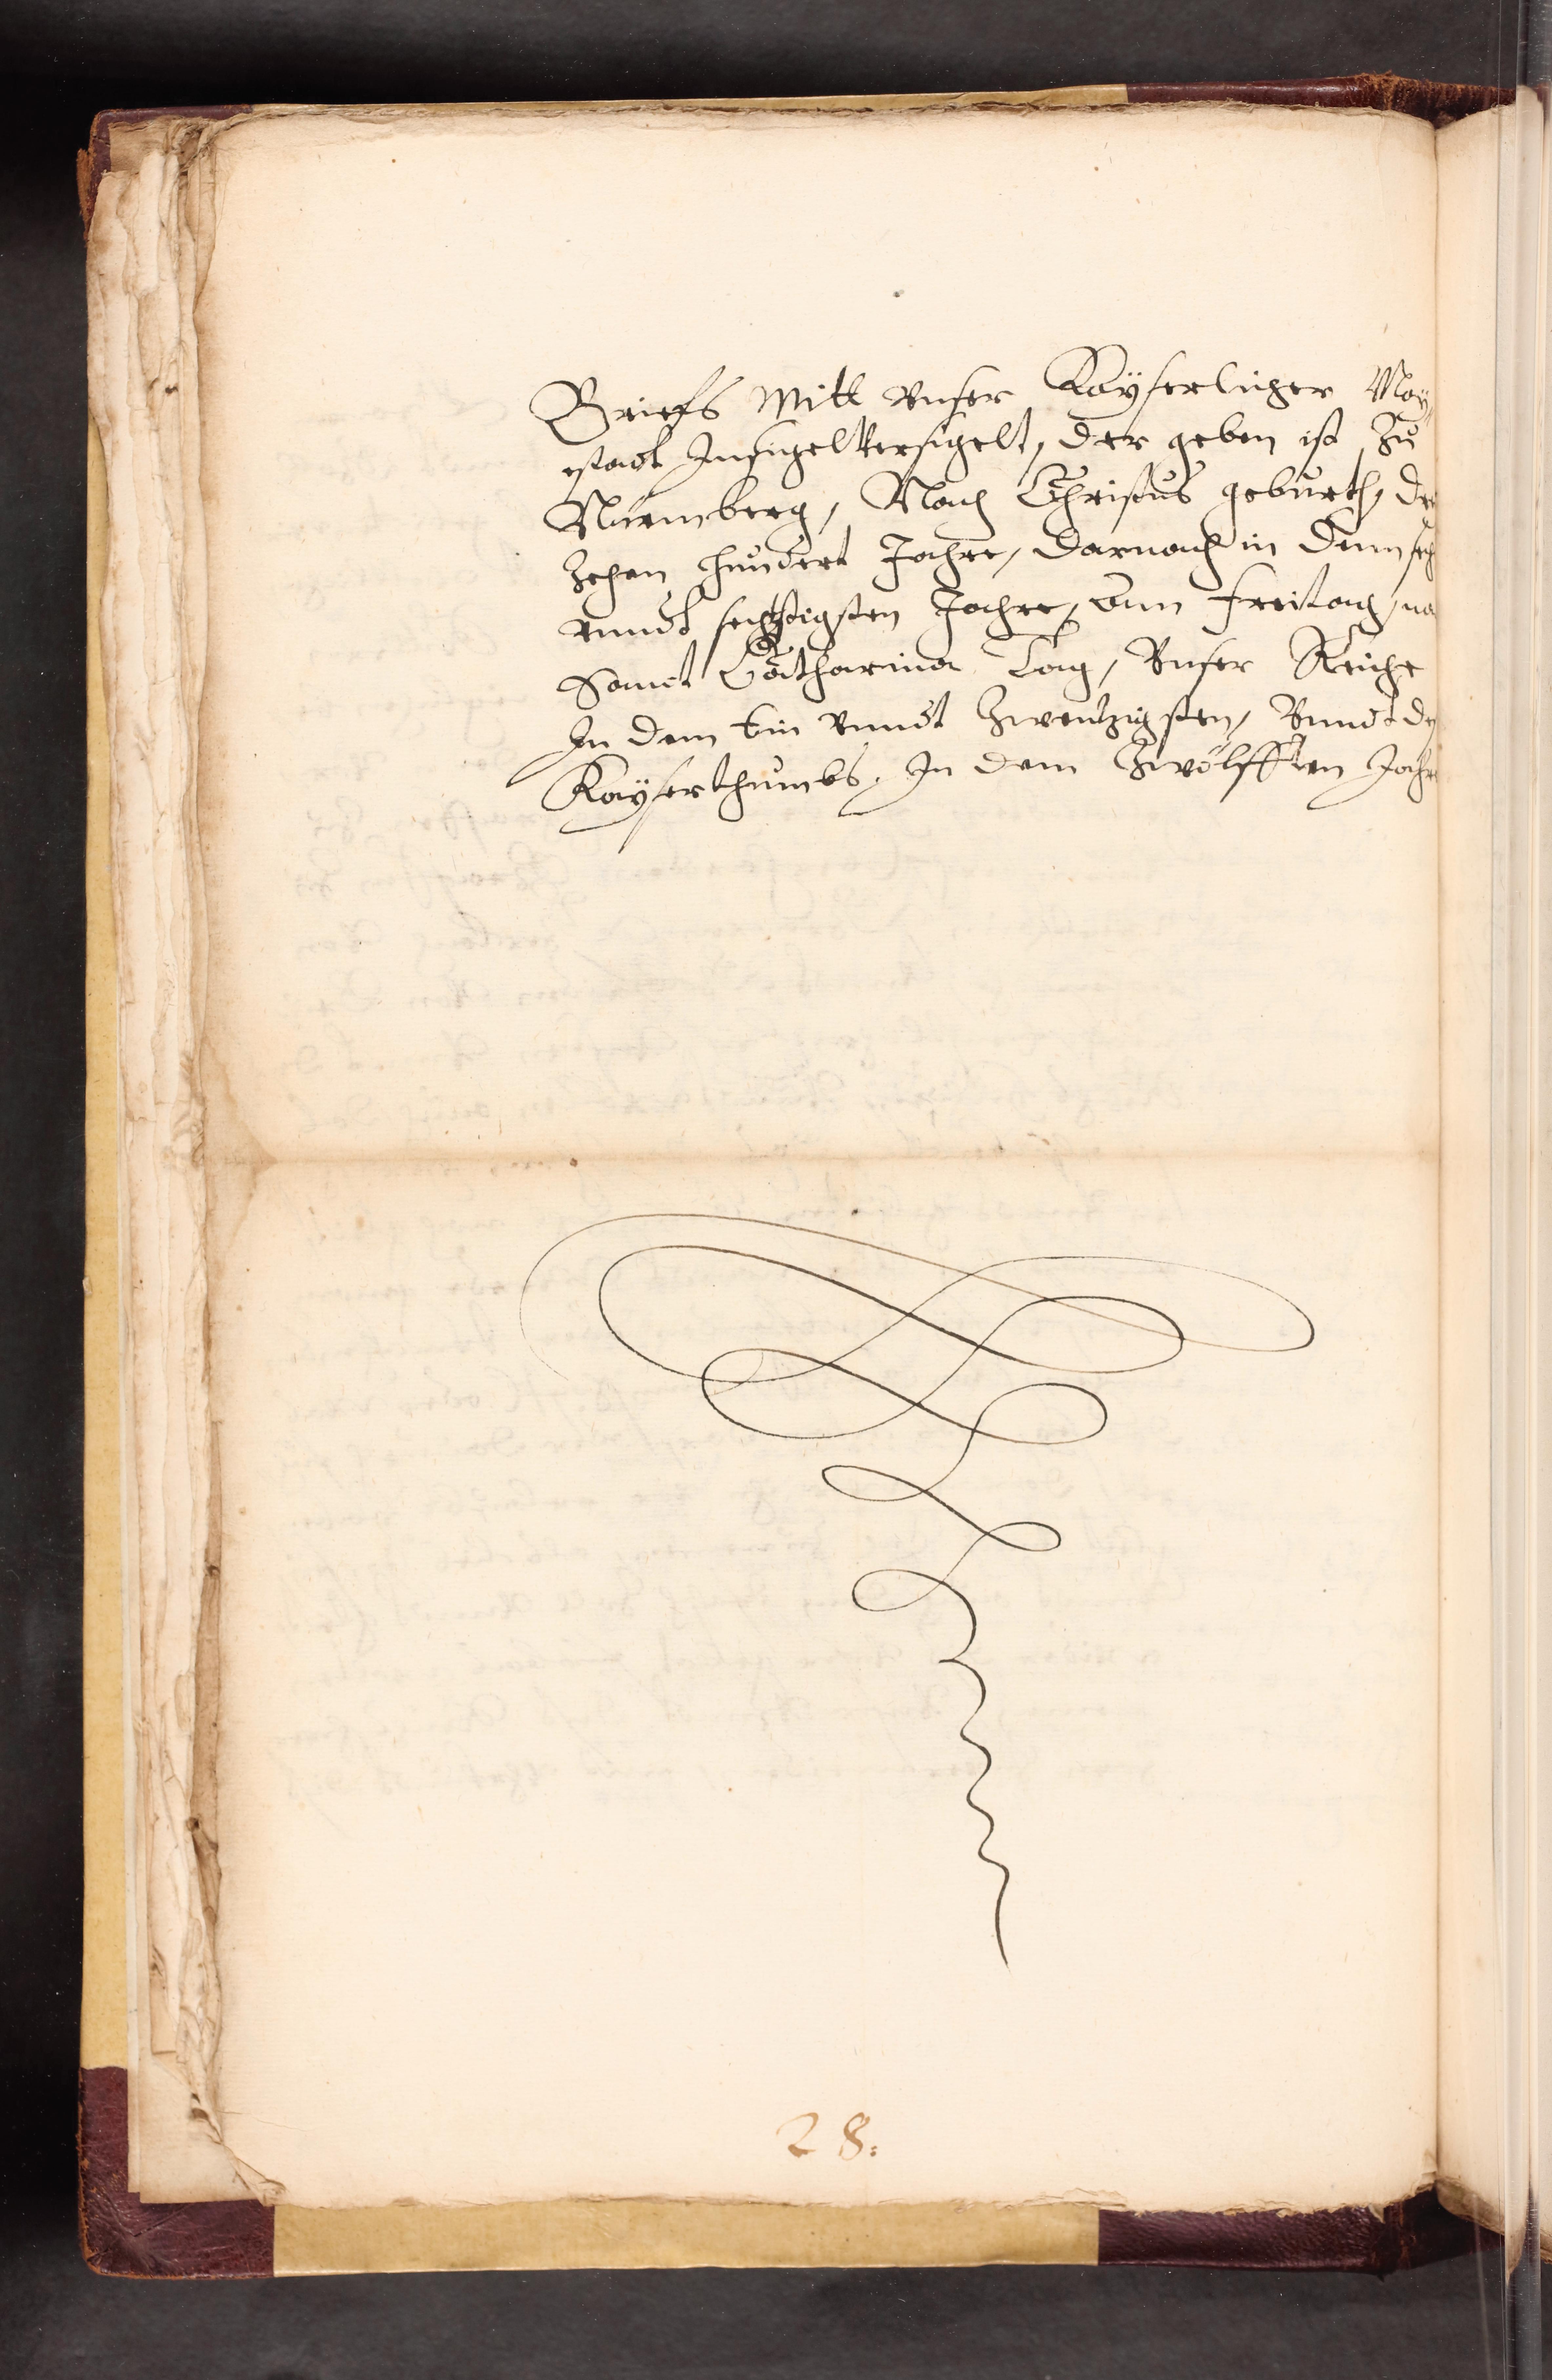 Briefs Mitt Unser Kayserlicher May¬
estadt Insigel Versigelt, der geben ist Zu
Nürmberg, Nach Christus geburth, dre
Zehen hundert Jahre, darnach in demm sech
unndt sechtzigsten Jahre, Ann freitag, na
Sanct Catharina Tag, Unser Reiche
In dem Ein Unndt Zwentzigsten, Unndt des
Kayserthumbs, In dem Zwölfften Jahre
28.